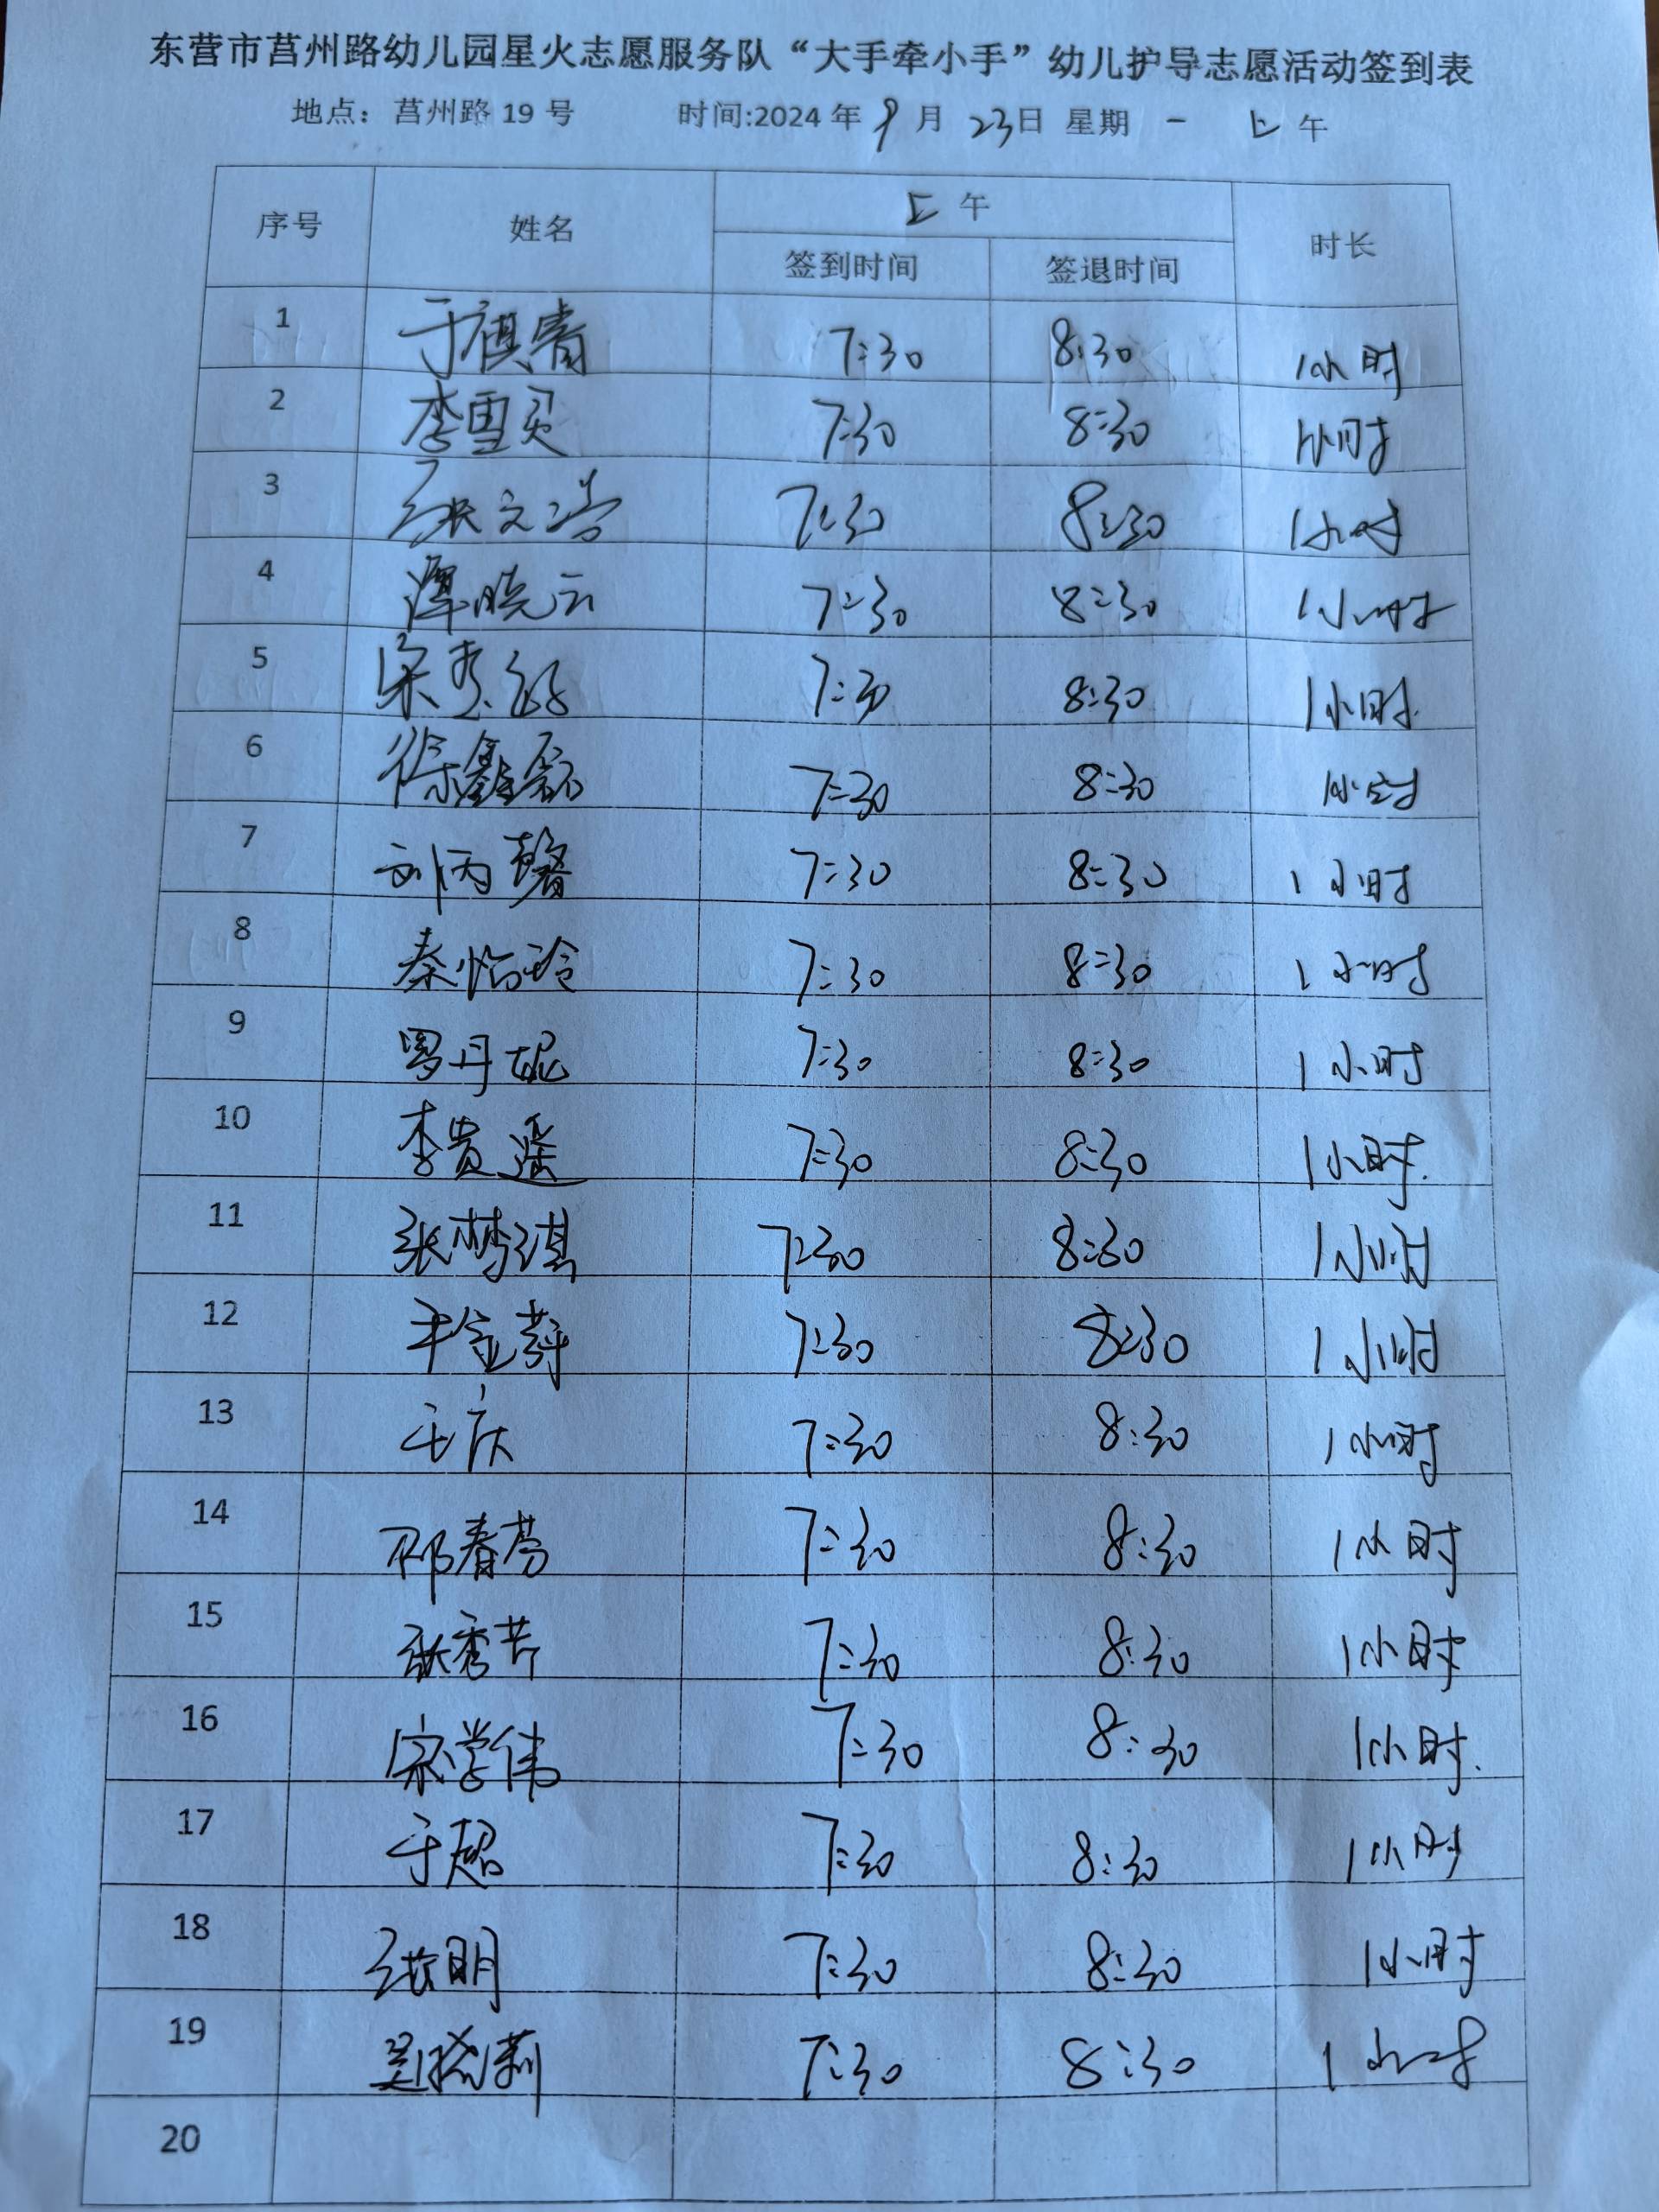 东营市莒州路幼儿园星火志愿服务队“大手牵小手”幼儿护导志愿活动签到表
地点：莒州路 19 号 时间:2024 年 9 月 23日 星期 一 上 午
序号 姓名 上 午 时长
签到时间 签退时间
1 于祺青 7:30 8:30 1小时
2 李雪 7:30 8:30 1小时
3 张文浩 7:30 8:30 1小时
4 谭晓云 7:30 8:30 1小时
5 宋秀 7:30 8:30 1小时.
6 徐鑫磊 7:30 8:30 1小时
7 刘丙馨 7:30 8:30 1小时
8 秦怡玲 7:30 8:30 1小时
9 罗丹妮 7:30 8:30 1小时
10 李贵遥 7:30 8:30 1小时.
11 张梦琪 7:30 8:30 1小时
12 7:30 8:30 1小时
13 庆 7:30 8:30 1小时
14 邴春芳 7:30 8:30 1小时
15 张秀芹 7:30 8:30 1小时
16 宋学伟 7:30 8:30 1小时.
17 于超 7:30 8:30 1小时
18 张明 7:30 8:30 1小时
19 吴晓莉 7:30 8:30 1小时
20